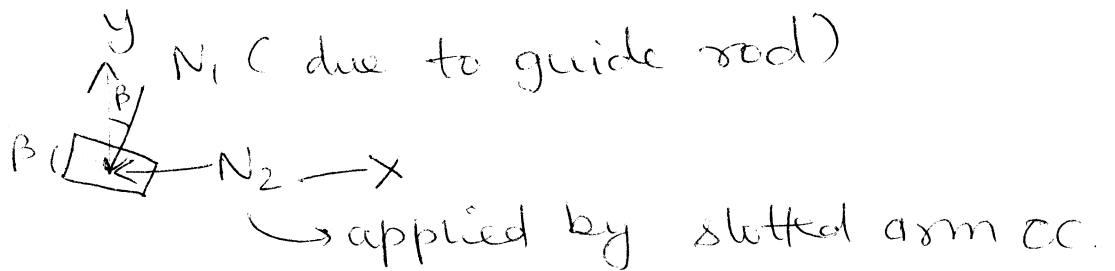 y
N₁ ( due to guide rod)
β
β ( N₂ x
applied by slotted arm CC.